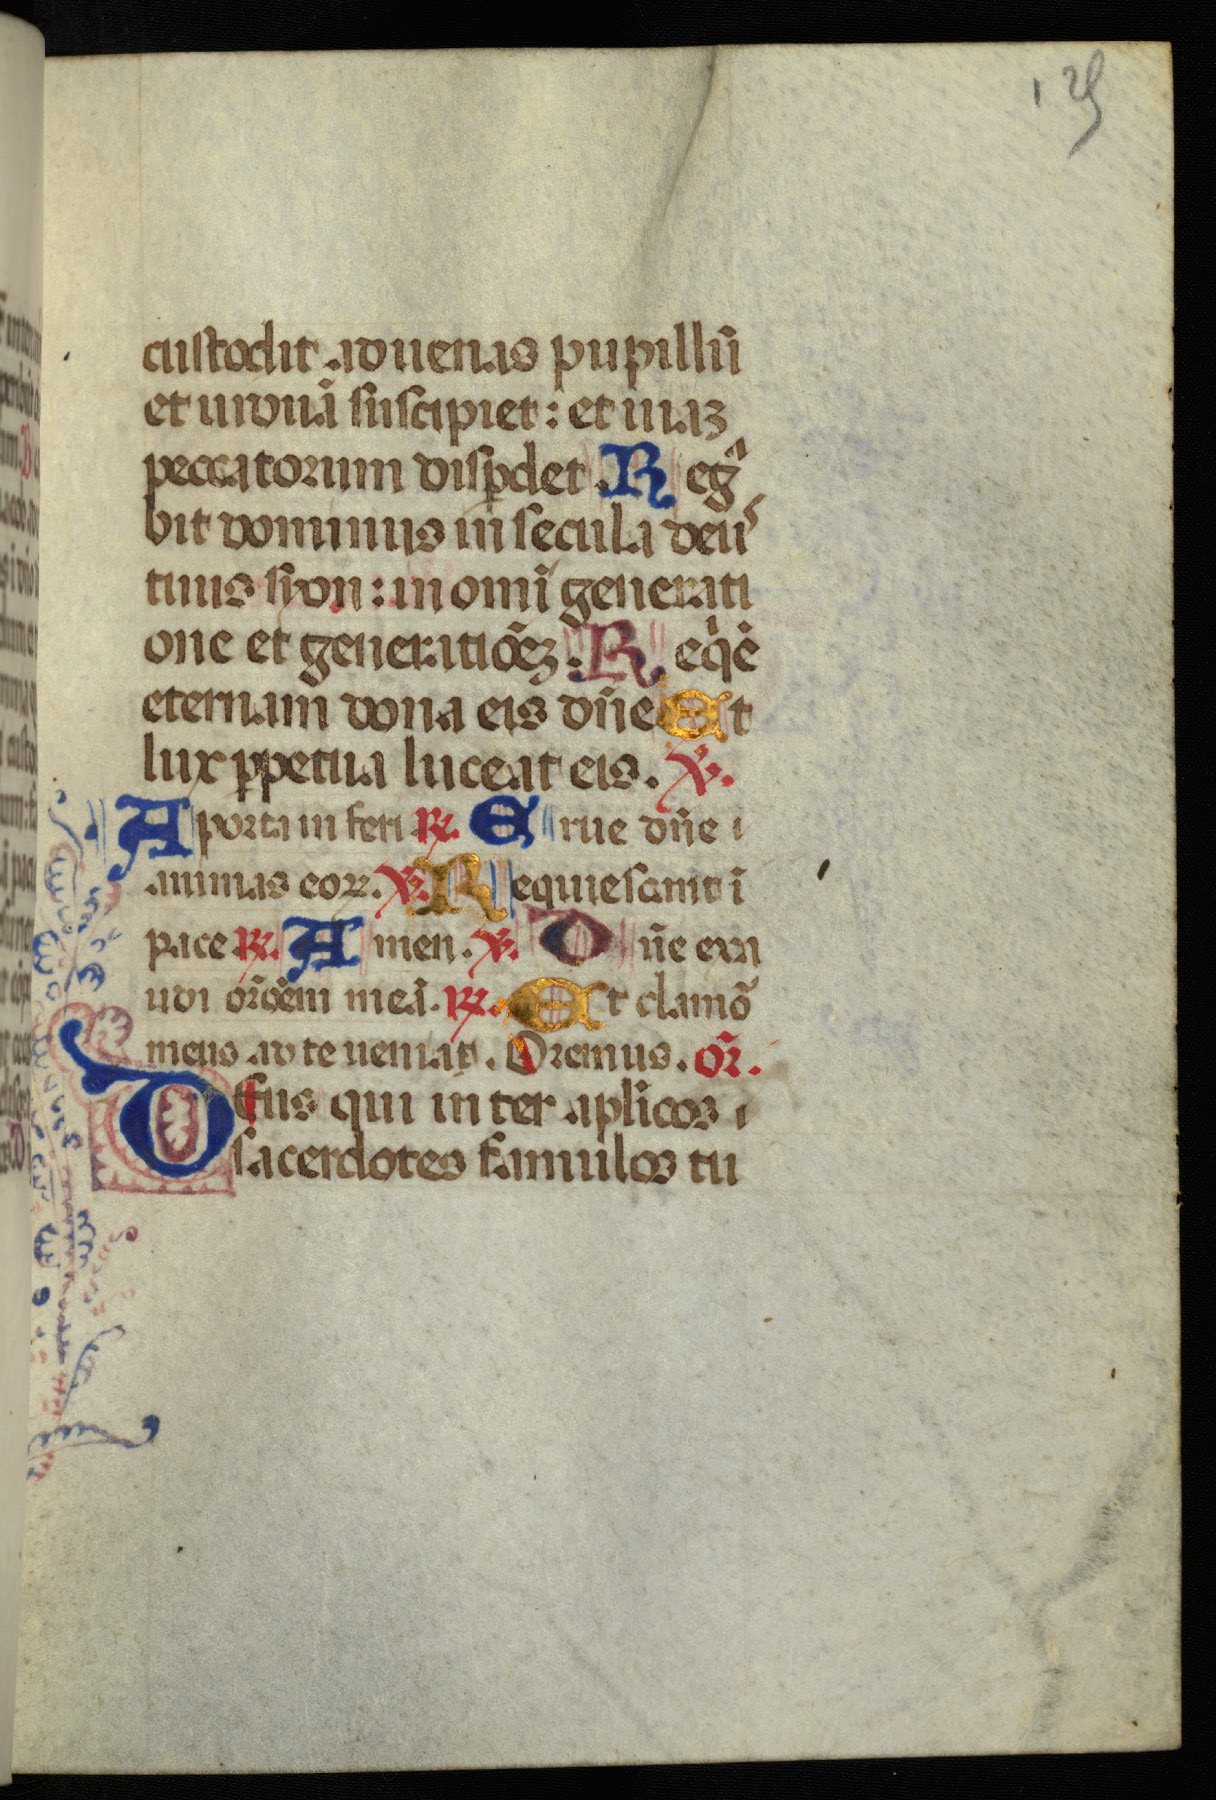 125
custodit aduenas pupillū
et uiduā suscipiet: et uiaz
peccatorum disp̱det Reg̃
bit dominus in secula deus
tuus syon: in omī generati
one et generatiōez. Reqẽ
eternam dona eis dñe Et
lux ꝑpetua luceat eis. ℣.
A porta inferi ℟. Erue dñe i
animas eoꝝ. ℣. Requiescant ī
pace ℟. Amen. ℣. Dñe exa
udi orōēm meā. ℟. Et clamō
meus ad te ueniat. Oremus. or̃.
Deus qui inter aplicos i
sacerdotes famulos tu